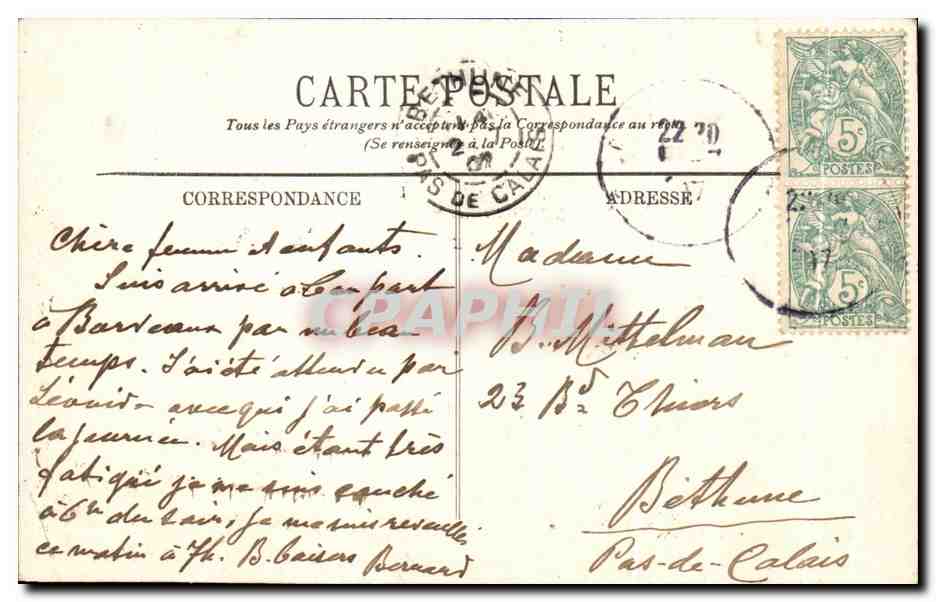 CARTE POSTALE
Tous les Pays étrangers n'acceptent pas la Correspondance au recto
(Se renseigner à la Poste)
CORRESPONDANCE
ADRESSE
BETHUNE
PAS DE CALAIS
22 30
17
5c
POSTES
5c
POSTES
17
Chère femme & enfants.
Suis arrivé à bon part
à Bordeaux par un beau
temps. J'ai été attendu par
Léonid avec qui j'ai passé
la journée. Mais étant très
fatigué je me suis couché
à 6h du soir, je me suis reveillé
ce matin à 7h. B. baisers Bernard
Madame
B. Mittelman
23 Bd Thiers
Béthune
Pas-de-Calais
CPAPHIL